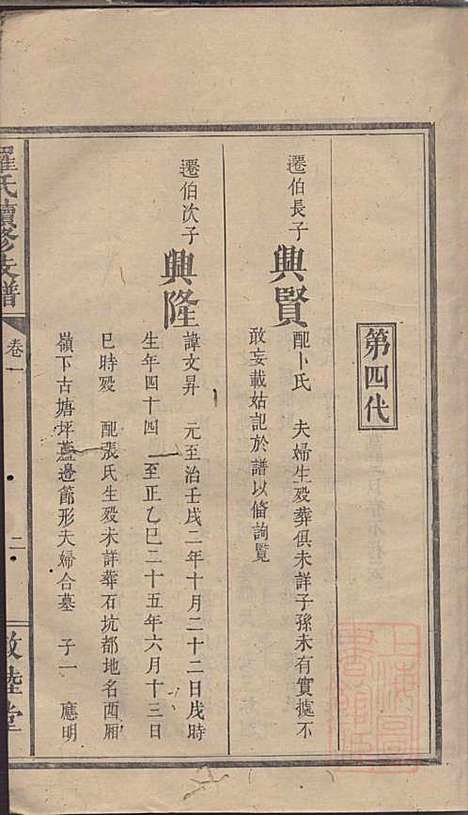 第四代
遷伯長子
興賢
配卜氏　夫婦生歿葬俱未詳子孫未有實據不
敢妄載姑記於譜以俻詢覧
遷伯次子
興隆
諱文昇　元至治壬戌二年十月二十二日戌時
生年四十四　至正乙巳二十五年六月十三日
巳時歿　配張氏生歿未詳葬石坑都地名西厢
嶺下古塘坪蓋邉節形夫婦合墓　子一　應明
羅氏續修支譜
卷一
二
敦睦堂
上海圖書館藏